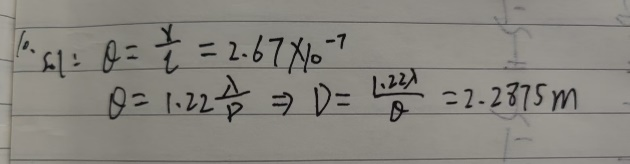 10. sol: θ = y/l = 2.67×10⁻⁷
θ = 1.22 λ/D ⇒ D = 1.22λ/θ = 2.2875m